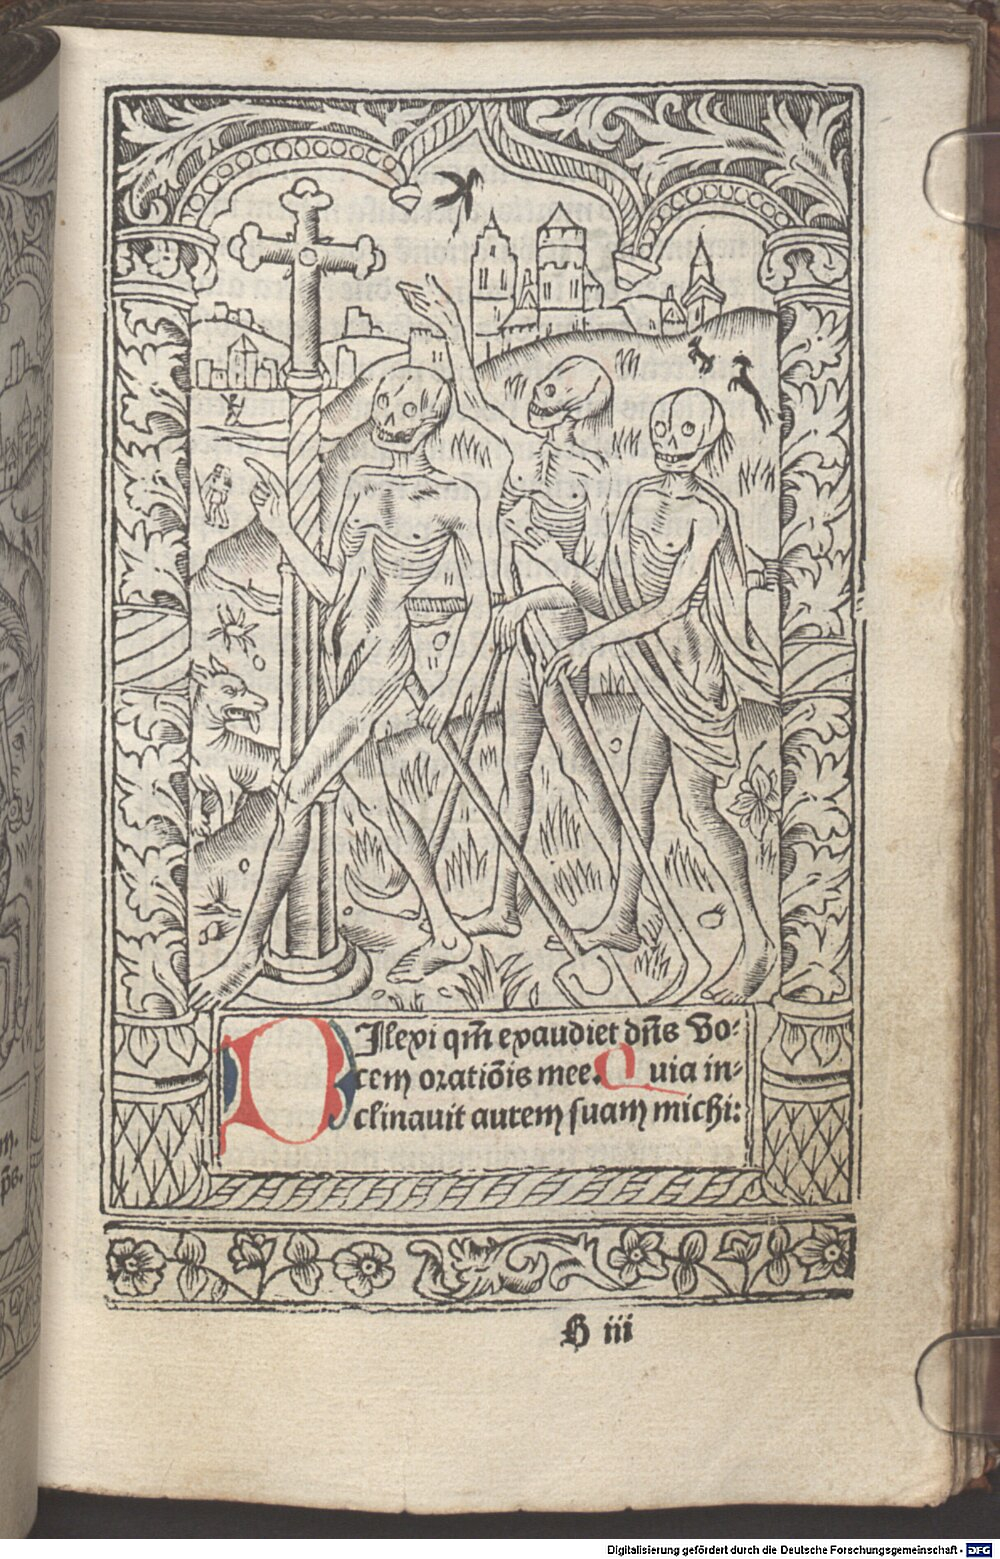 DIlexi qm̄ exaudiet dn̄s Vo⸗
cem oratiōis mee. Quia in⸗
clinauit aurem suam michi:
h iii
m.
p̄s.
Digitalisierung gefördert durch die Deutsche Forschungsgemeinschaft - DFG